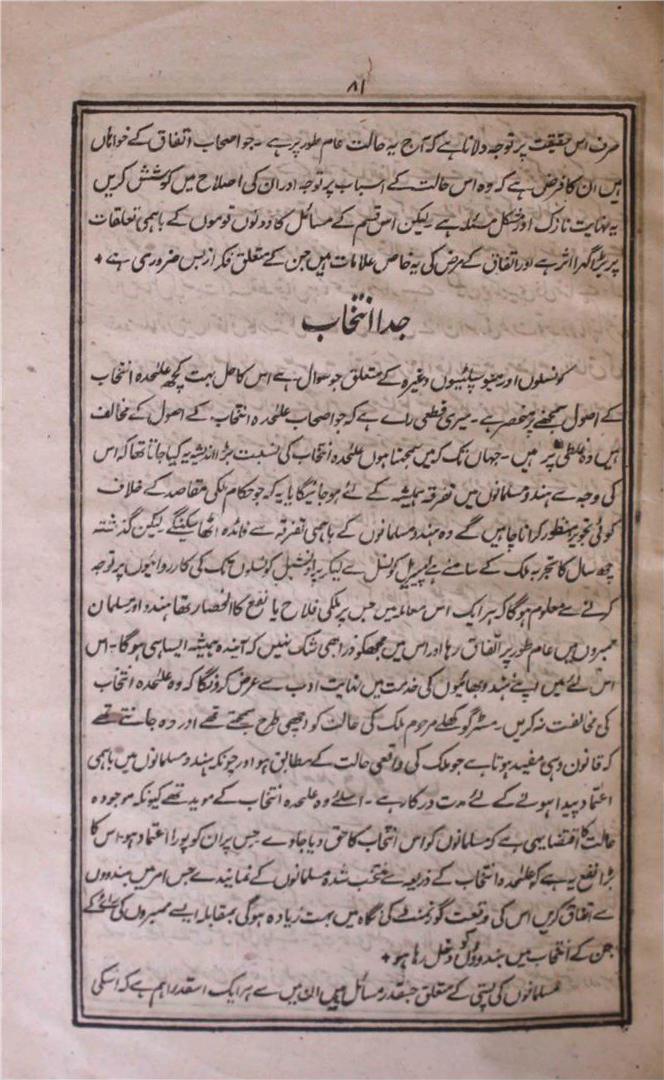 ۸۱
صرف اس حقیقت پر توجہ دلانا ہے کہ آج یہ حالت عام طور پر ہے - جو اصحاب اتفاق کے خواہاں
ہیں ان کا فرض ہے کہ وہ اس حالت کے اسباب پر توجہ اور ان کی اصلاح میں کوشش کریں
یہ نہایت نازک اور مشکل مسئلہ ہے لیکن اس قسم کے مسائل کا دونوں قوموں کے باہمی تعلقات
پر بڑا گہرا اثر ہے اور اتفاق کے مرض کی یہ خاص علامات ہیں جن کے متعلق فکر از بس ضروری ہے +
جدا انتخاب
کونسلوں اور میونسپلٹیوں وغیرہ کے متعلق جو سوال ہے اس کا حل بہت کچھ علٰحدہ انتخاب
کے اصول سمجھنے پر منحصر ہے - میری قطعی راے ہے کہ جو اصحاب علٰحدہ انتخاب کے اصول کے مخالف
ہیں وہ غلطی پر ہیں - جہاں تک کہ میں سمجھتا ہوں علٰحدہ انتخاب کی نسبت بڑا اندیشہ یہ کیا جاتا تھا کہ اس
کی وجہ سے ہندو مسلمانوں میں تفرقہ ہمیشہ کے لئے ہو جائیگا یا یہ کہ جو حکام ملکی مقاصد کے خلاف
کوئی تجویز منظور کرانا چاہیں گے وہ ہندو مسلمانوں کے باہمی تفرقہ سے فائدہ اٹھا سکینگے لیکن گذشتہ
چھ سال کا تجربہ ملک کے سامنے ہے امپیریل کونسل سے لیکر پراونشیل کونسلوں تک کی کارروائیوں پر توجہ
کرنے سے معلوم ہوگا کہ ہر ایک اس معاملہ میں جس پر ملکی فلاح یا نفع کا انحصار تھا ہندو اور مسلمان
ممبروں میں عام طور پر اتفاق رہا اور اس میں مجھکو ذرا بھی شک نہیں کہ آیندہ ہمیشہ ایسا ہی ہوگا - اس
اس لئے میں اپنے ہندو بھائیوں کی خدمت میں نہایت ادب سے عرض کرونگا کہ وہ علٰحدہ انتخاب
کی مخالفت نہ کریں - مسٹر گوکھلے مرحوم ملک کی حالت کو اچھی طرح سمجھتے تھے اور وہ جانتے تھے
کہ قانون وہی مفید ہوتا ہے جو ملک کی واقعی حالت کے مطابق ہو اور چونکہ ہندو مسلمانوں میں باہمی
اعتماد پیدا ہونے کے لئے مدت درکار ہے - اسلئے وہ علٰحدہ انتخاب کے موید تھے کیونکہ موجودہ
حالت کا اقتضا یہی ہے کہ مسلمانوں کو اس انتخاب کا حق دیا جاوے جس پر ان کو پورا اعتماد ہو - اس کا
بڑا نفع یہ ہے کہ علٰحدہ انتخاب کے ذریعہ سے منتخب شدہ مسلمانوں کے نمایندے جس امر میں ہندووں
سے اتفاق کریں اس کی وقعت گورنمنٹ کی نگاہ میں بہت زیادہ ہوگی بمقابلہ ایسے ممبروں کی رائے کے
جن کے انتخاب میں ہندوؤں کو دخل رہا ہو +
مسلمانوں کی پستی کے متعلق جسقدر مسائل ہیں ان میں سے ہر ایک اسقدر اہم ہے کہ اسکی